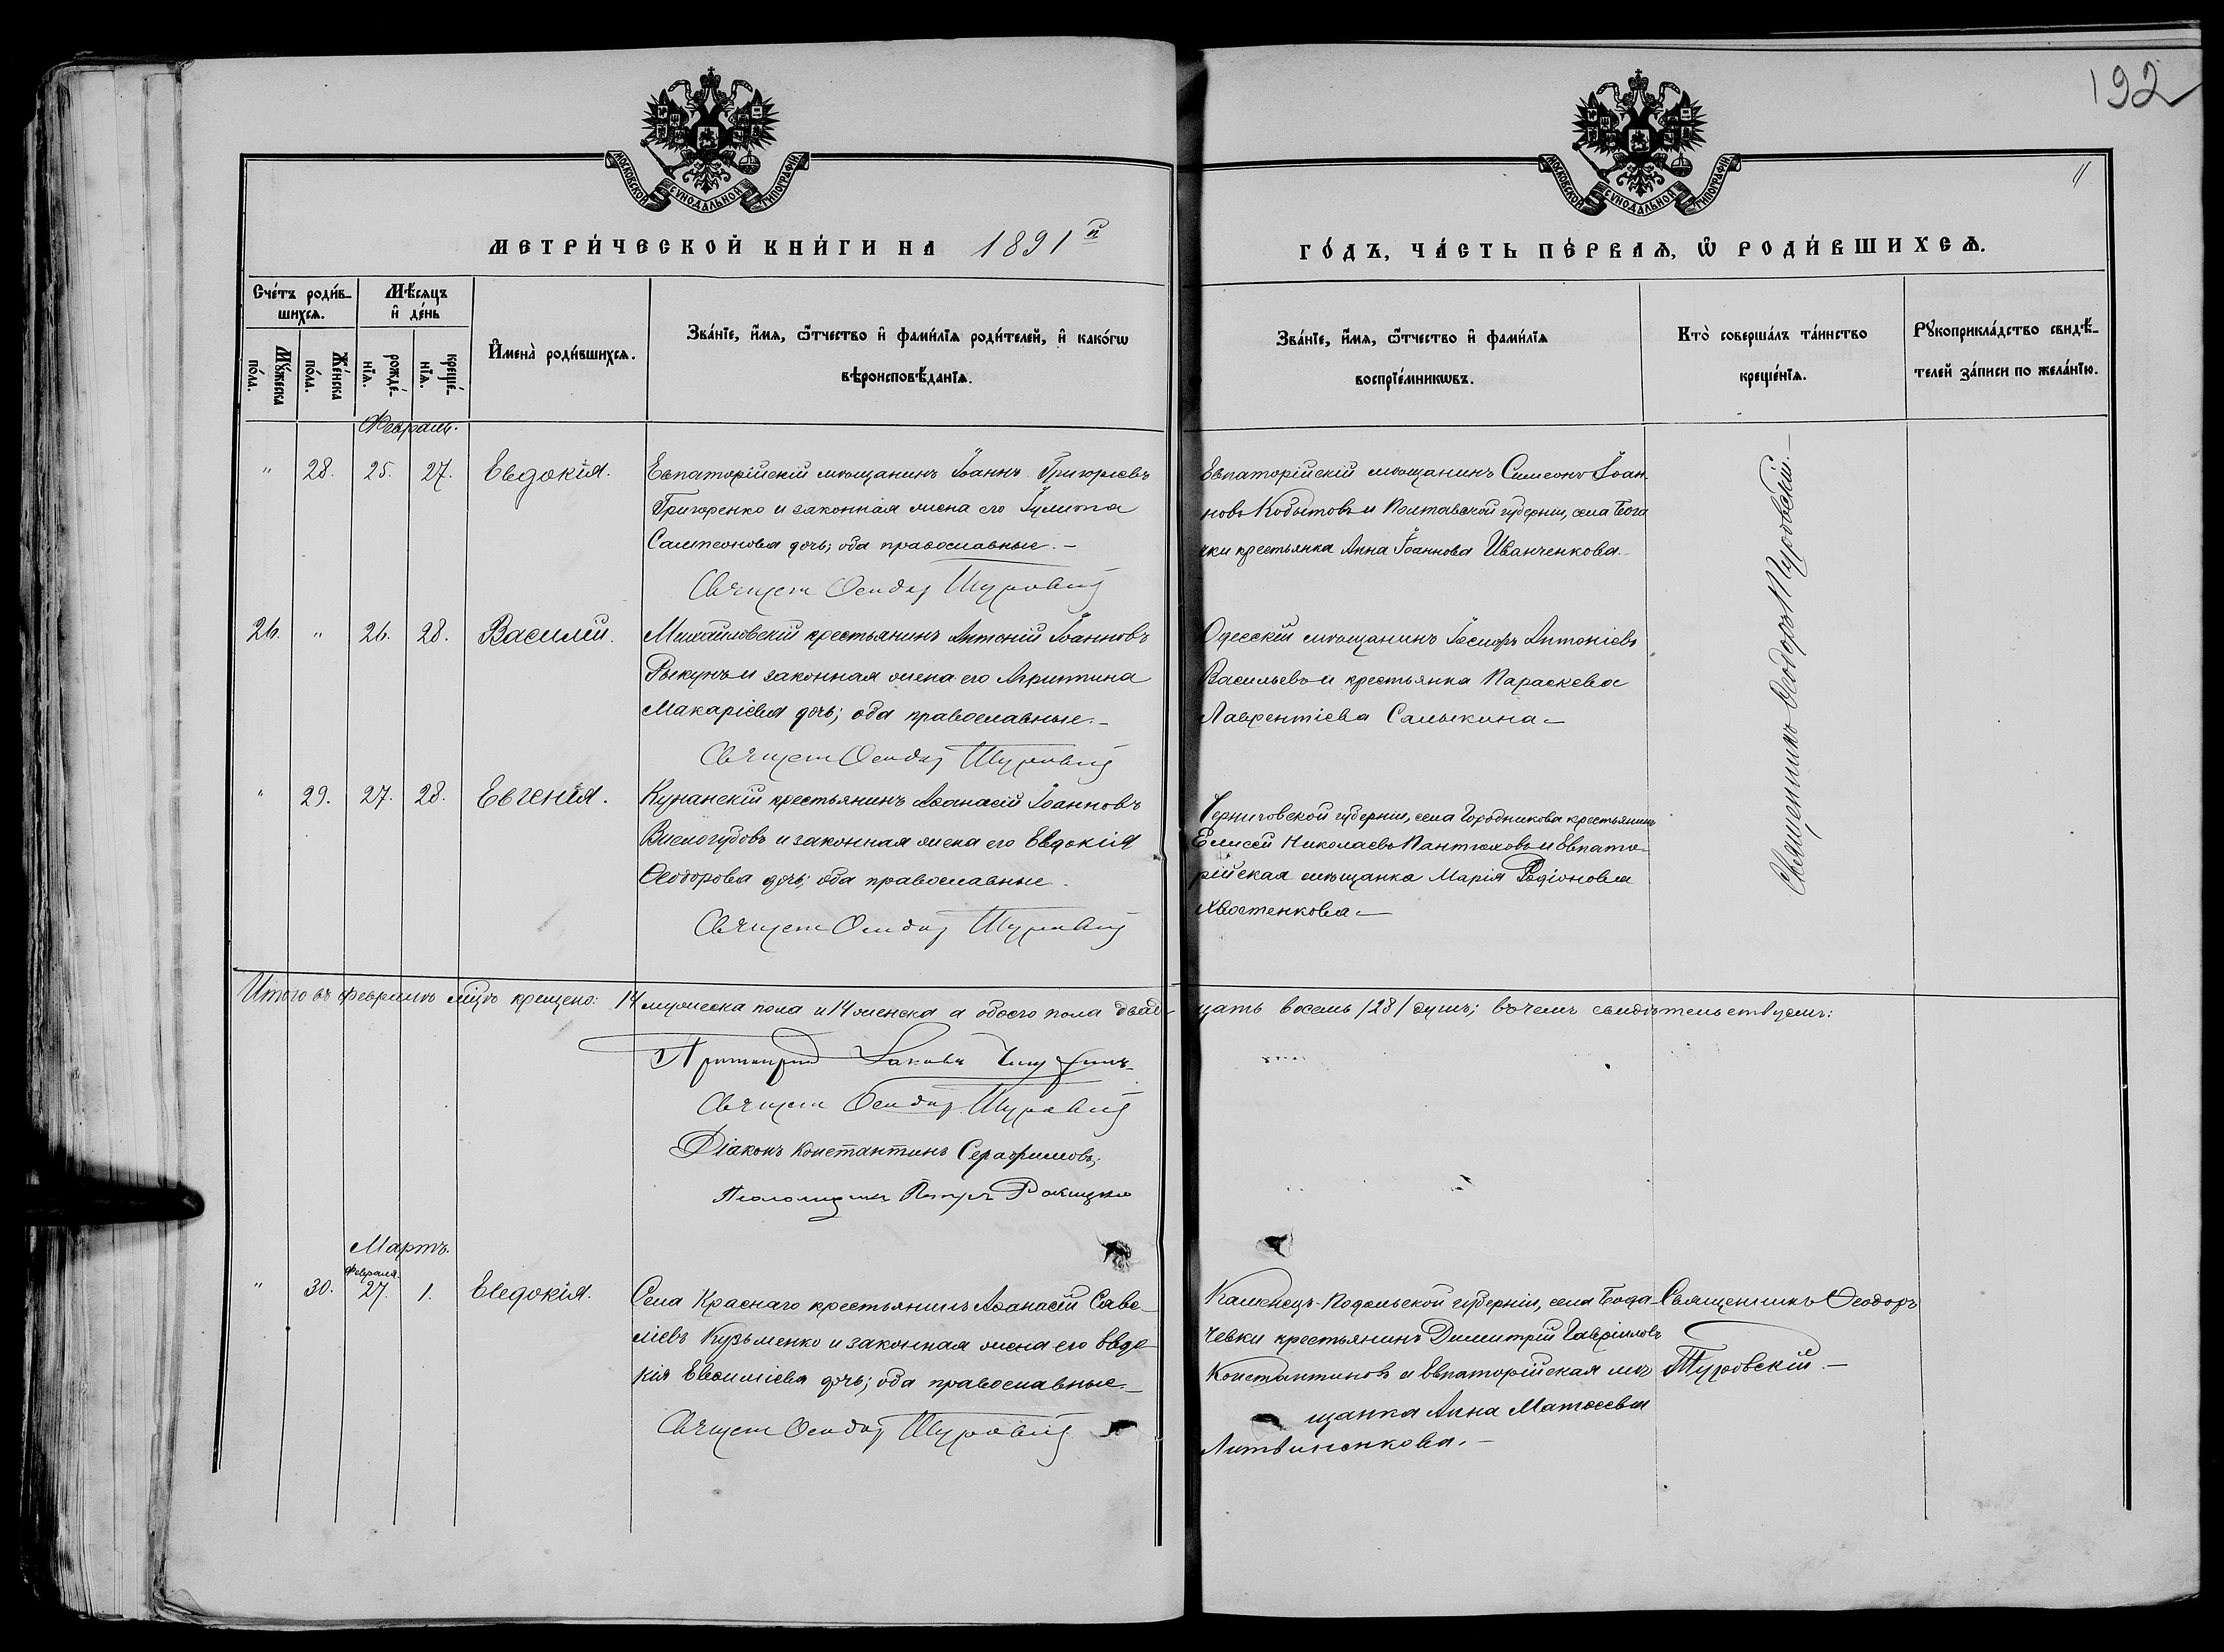 192
11
МОСКОВСКОЙ СѴНОДАЛЬНОЙ ТИПОГРАФІИ
МОСКОВСКОЙ СѴНОДАЛЬНОЙ ТИПОГРАФІИ
МЕТРИ́ЧЕСКОЙ КНИ́ГИ НА 1891й
ГО́ДЪ, ЧА́СТЬ ПЕ́РВАѦ, Ѡ҆ РОДИ́ВШИХСѦ.
Сче́тъ роди́в-
шихсѧ.
Мѣ́сяцъ
и҆ де́нь
Мꙋ́жеска
по́ла.
Же́нска
по́ла.
рожде́-
нїѧ.
креще́-
нїѧ.
И҆мена̀ роди́вшихсѧ.
Зва́нїе, и҆́мѧ, ѻ҆́тчество и҆ фами́лїѧ роди́телей, и҆ како́гѡ
вѣроисповѣ́данїѧ.
Зва́нїе, и҆́мѧ, ѻ҆́тчество и҆ фами́лїѧ
воспрїе́мникѡвъ.
Кто̀ соверша́лъ та́инство
креще́нїѧ.
Рꙋкоприкла́дство свидѣ́-
телей за́писи по жела́нїю.
Февраль.
" 28. 25. 27. Евдокія.
Евпаторійскій мѣщанинъ Іоаннъ Григоріевъ
Григоренко и законная жена его Іулитта
Сампсонова дочь; оба православные.–
Священ Ѳеодор Туровскій
Евпаторійскій мѣщанинъ Симеонъ Іоан-
новъ Кобытовъ и Полтавской губерніи, села Бога
чки крестьянка Анна Іоаннова Иванченкова.
Священникъ Ѳеодоръ Туровскій.–
26. " 26. 28. Василій.
Михайловскій крестьянинъ Антоній Іоанновъ
Рыкунъ и законная жена его Агриппина
Макаріева дочь; оба православные.–
Священ Ѳеодор Туровскій
Одесскій мѣщанинъ Іосифъ Антоніевъ
Васильевъ и крестьянка Параскева
Лаврентіева Салыкина –
" 29. 27. 28. Евгенія.
крестьянинъ Аѳанасій Іоанновъ
Вислогубовъ и законная жена его Евдокія
Ѳеодорова дочь; оба православные.
Священ Ѳеодор Туровскій
Черниговской губерніи, села Городникова крестьянинъ
Елисей Николаевъ Пантюховъ и Евпато-
рійская мѣщанка Марія Родіонова
Хвостенкова –
Итого въ февралѣ мцѣ крещено: 14 мужеска пола и 14 женска а обоего пола двад-
цать восемь /28/ душъ; въ чемъ свидѣтельствуемъ:
Протоіерей Іаковъ
Священ Ѳеодор Туровскій
Діаконъ Константинъ Серафимовъ,
Псаломщикъ Петръ
Мартъ.
Февраля.
" 30. 27. 1. Евдокія.
Села Краснаго крестьянинъ Аѳанасій Саве-
ліевъ Кузьменко и законная жена его Евдо-
кія Евѳиміева дочь; оба православные.–
Священ Ѳеодор Туровскій
Каменецъ-Подольской губерніи, села Бода-
чевки крестьянинъ Димитрій Гавріиловъ
Константиновъ и Евпаторійская мѣ
щанка Анна Матѳеева
Литвиненкова.–
Священникъ Ѳеодоръ
Туровскій.–